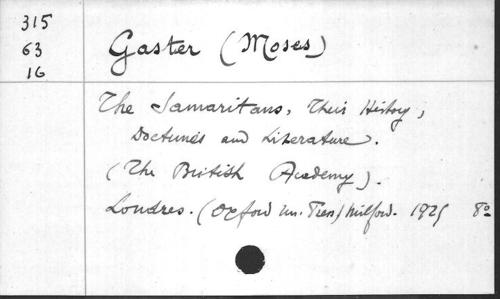 315
63
16
Gaster (Moses)
The Samaritans, Their History,
Doctrines and Literature.
(The British Academy).
Londres. (Oxford Un. Press) Milford. 1925 8º